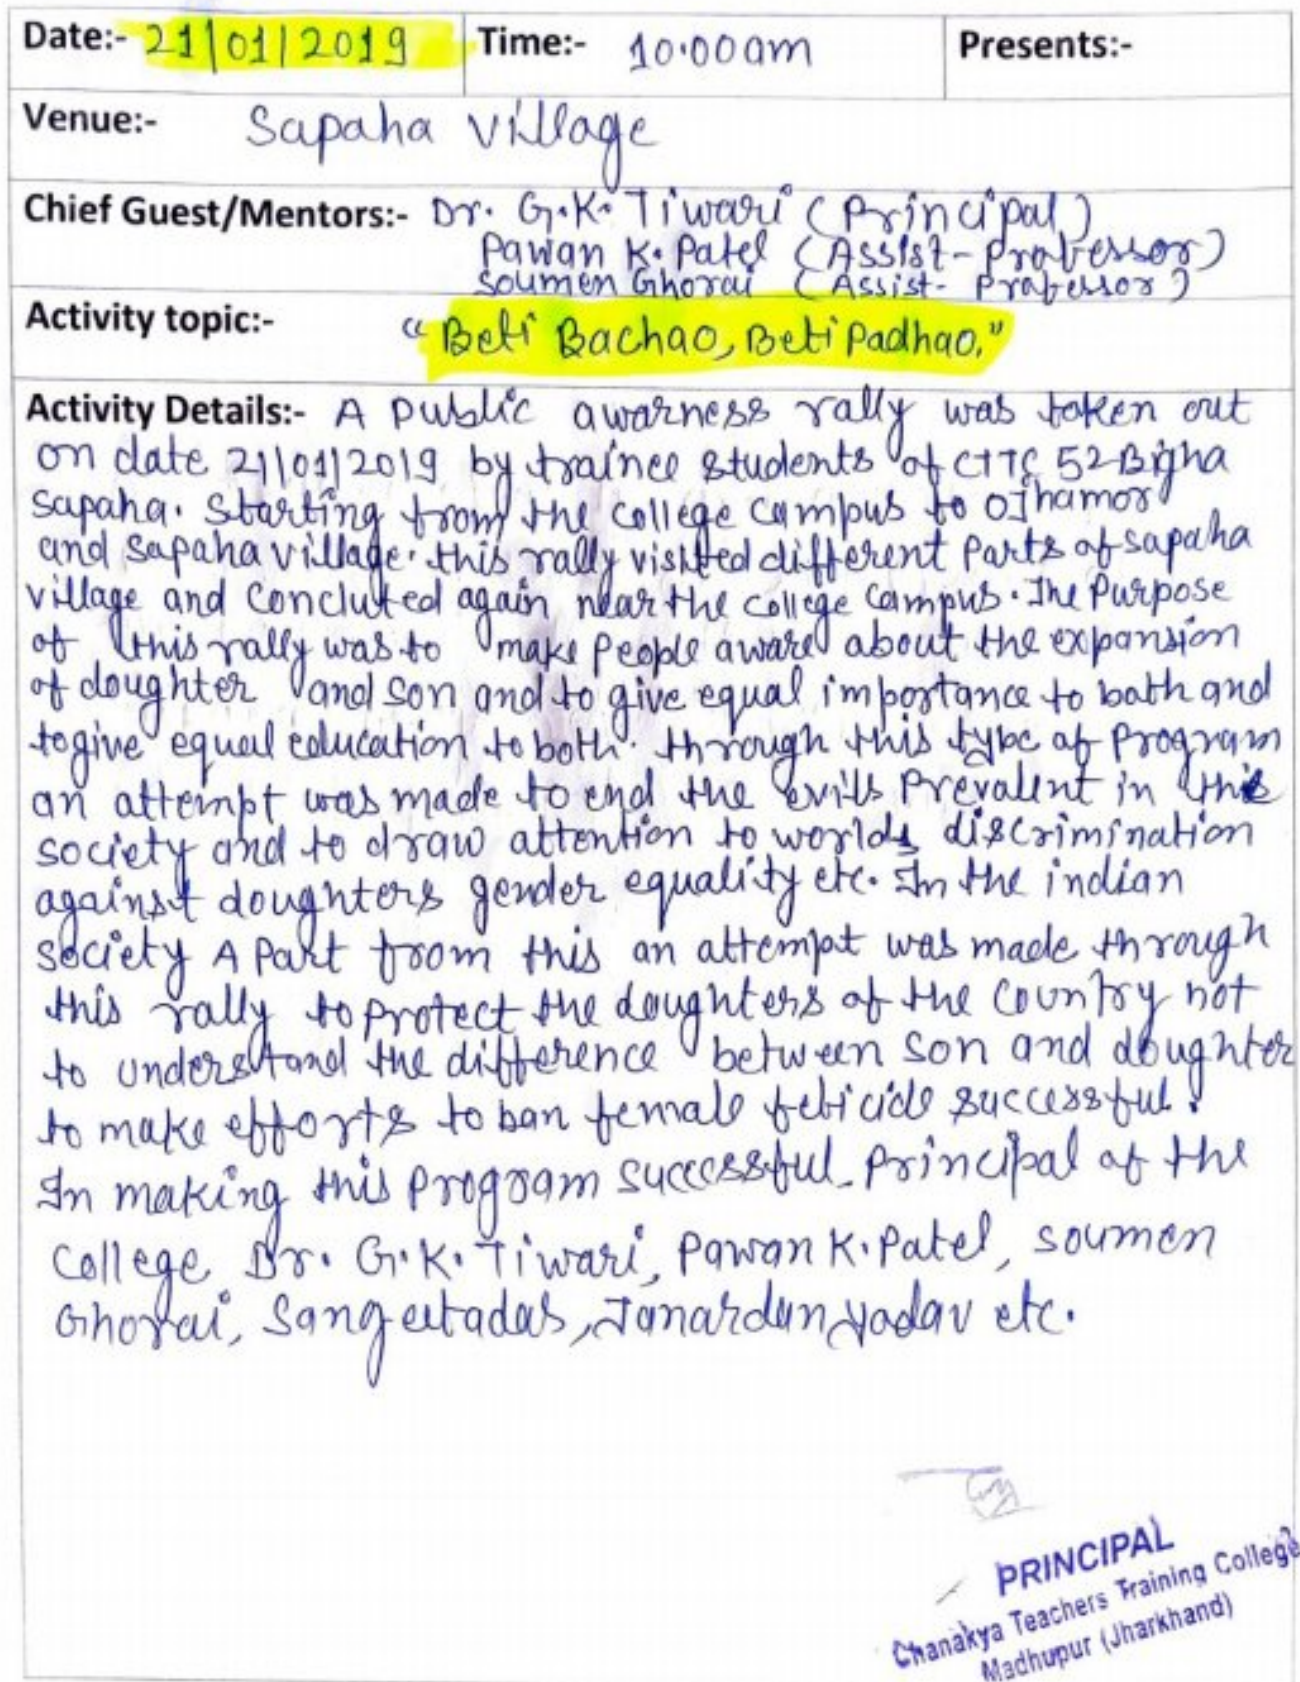 Date:- 21/01/2019 Time:- 10.00am Presents:-
Venue:- Sapaha Village
Chief Guest/Mentors:- Dr. G.K. Tiwari (Principal)
Pawan K. Patel (Assist-Professor)
Soumen Ghorai (Assist- Professor)
Activity topic:- "Beti Bachao, Beti Padhao."
Activity Details:- A Public awarness rally was taken out
on date 21/01/2019 by trainee students of CTTC 52 Bigha
Sapaha. Starting from the college campus to Ojhamor
and Sapaha village. this rally visited different Parts of sapaha
village and Concluted again near the college campus. The Purpose
of this rally was to make people aware about the expansion
of doughter and son and to give equal importance to both and
to give equal education to both. through this type of Program
an attempt was made to end the evils Prevalent in this
society and to draw attention to worlds discrimination
against doughters gender equality etc. In the indian
society A Part from this an attempt was made through
this rally to protect the doughters of the country not
to understand the difference between son and doughter
to make efforts to ban female feticide successful.
In making this program successful Principal of the
College Dr. G.K. Tiwari, Pawan K. Patel, Soumen
Ghorai, Sangeetadas, Janardan yadav etc.
PRINCIPAL
Chanakya Teachers Training College
Madhupur (Jharkhand)